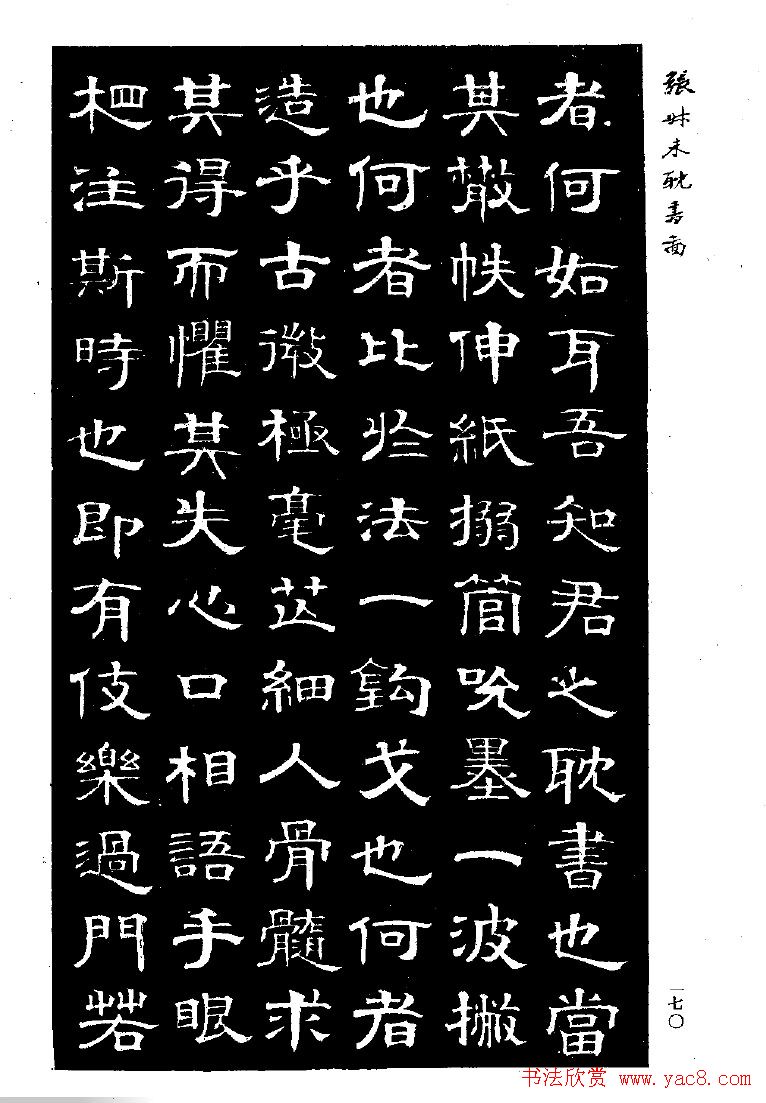 張尗未耽書啚
者何如耳吾知君之耽書也當
其散帙伸紙搦管吮墨一波撇
也何者比於法一鉤戈也何者
造乎古微極毫芒細入骨髓求
其得而懼其失心口相語手眼
相注斯時也即有伎樂過門若
一七〇
书法欣赏 www.yac8.com